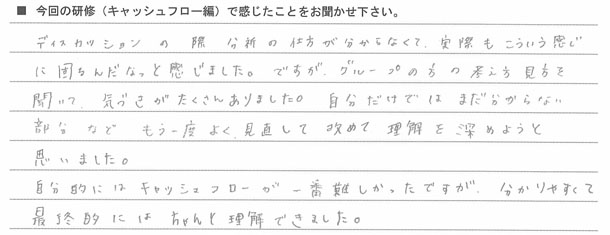 ■ 今回の研修（キャッシュフロー編）で感じたことをお聞かせ下さい。
ディスカッションの際 分析の仕方が分からなくて、実際もこういう感じ
に困るんだなっと感じました。ですが、グループの方の考え方見方を
聞いて、気づきがたくさんありました。自分だけではまだ分からない
部分など もう一度よく見直して 改めて 理解を深めようと
思いました。
自分的にはキャッシュフローが一番難しかったですが、分かりやすくて
最終的にはちゃんと理解できました。